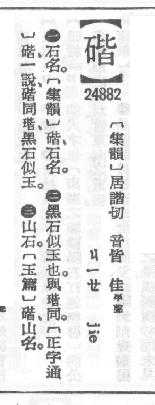 【䃈】
24882
〔集韻〕居諧切 音皆 佳韻
ㄐㄧㄝ jie
㊀石名。〔集韻〕䃈、石名。㊁黑石似玉也、與瑎同。〔正字通
〕䃈、一說䃈同瑎、黑石似玉。㊂山石。〔玉篇〕䃈、山名。